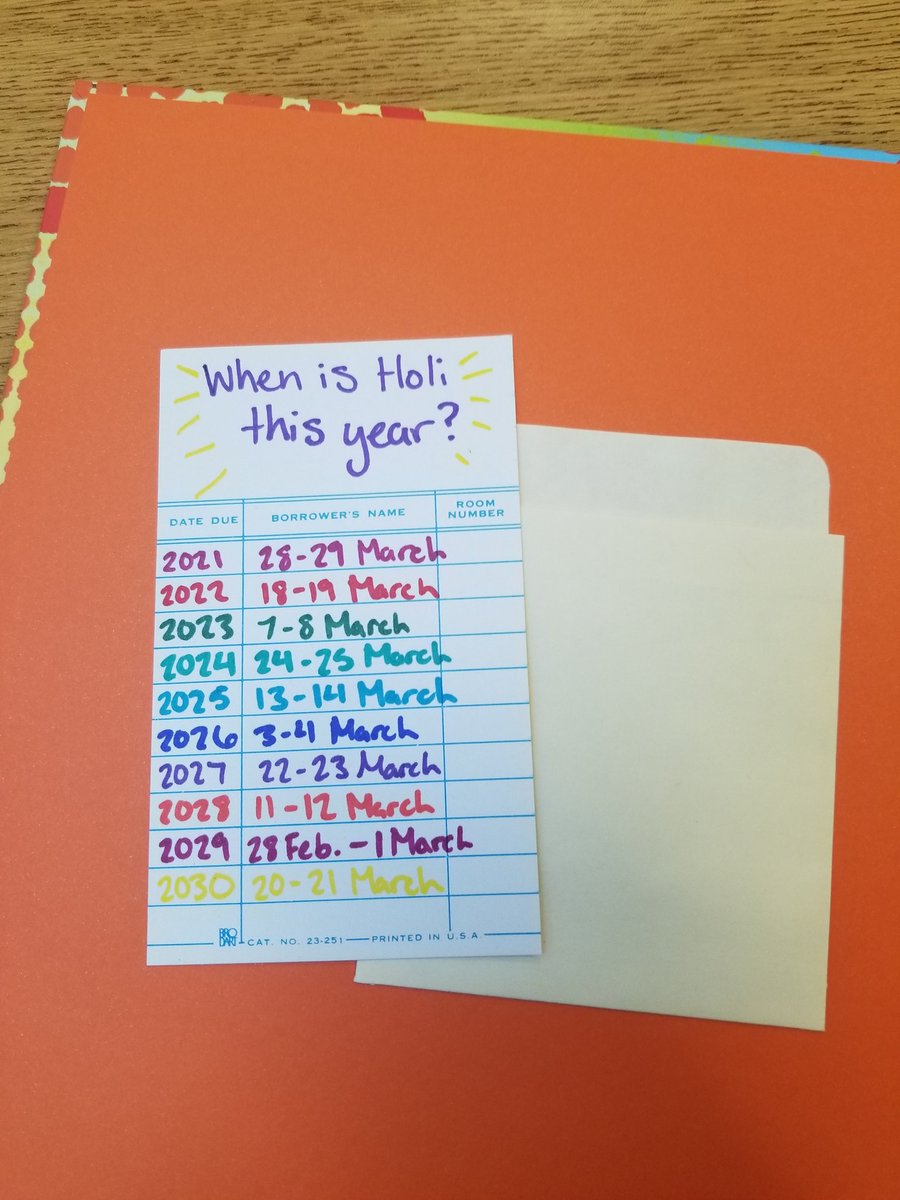 When is Holi
this year?
DATE DUE BORROWER'S NAME ROOM NUMBER
2021 28-29 March
2022 18-19 March
2023 7-8 March
2024 24-25 March
2025 13-14 March
2026 3-4 March
2027 22-23 March
2028 11-12 March
2029 28 Feb. - 1 March
2030 20-21 March
BRO DART CAT. NO. 23-251 PRINTED IN U.S.A.